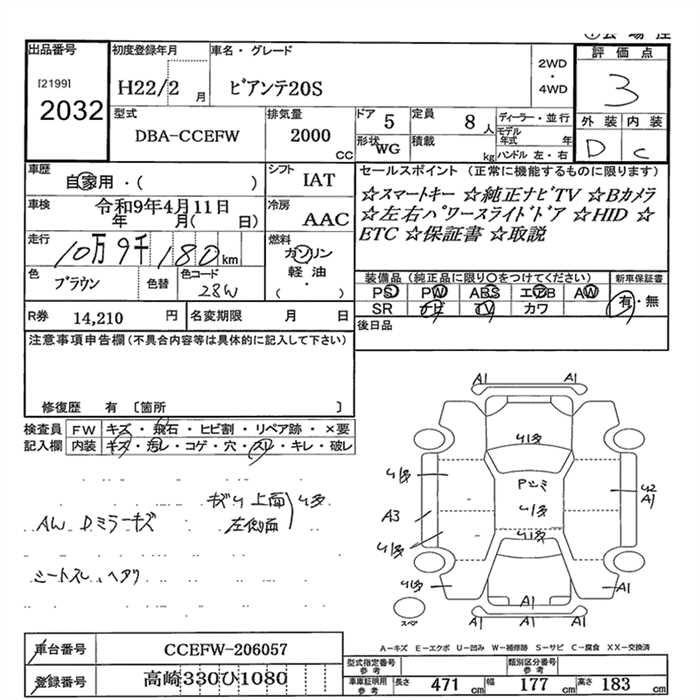 出品番号
[2199]
2032
初度登録年月
H22/2 月
車名・グレード
ビアンテ20S
2WD
・
4WD
評価点
3
外装 内装
D C
型式
DBA-CCEFW
排気量
2000
CC
ドア 5
定員 8 人
形状 WG
積載 kg
ディーラー・並行
モデル年式 年
ハンドル 左・右
車歴
自家用・( )
シフト
IAT
車検 令和9年4月11日
年 月( 日)
冷房
AAC
走行
10万9千180km
燃料
ガソリン
軽油・
( )
色
ブラウン
色替
色コード
28W
R券 14,210 円
名変期限 月 日
セールスポイント (正常に機能するものに限ります)
☆スマートキー ☆純正ナビTV ☆Bカメラ
☆左右パワースライドドア ☆HID ☆
ETC ☆保証書 ☆取説
装備品(純正品に限り○をつけてください)
PS PW ABS エアB AW
SR ナビ TV カワ
新車保証書
有・無
後日品
注意事項申告欄(不具合内容等は具体的に記入して下さい)
修復歴 有 〔箇所 〕
検査員
記入欄
FW キズ・飛石・ヒビ割・リペア跡・×要
内装 キズ・汚レ・コゲ・穴・スレ・キレ・破レ
AW Dミラーキズ
上面
左側面
シートスレ、ヘタリ
A1 A1
A3
A1
A1
A1 A1
スペア
A-キズ E-エクボ U-凹み W-補修跡 S-サビ C-腐食 XX-交換済
車台番号 CCEFW-206057
登録番号 高崎330ひ1080
型式指定番号
参考
類別区分番号
参考
車庫証明用
参考
長さ 471 cm
幅 177 cm
高さ 183 cm